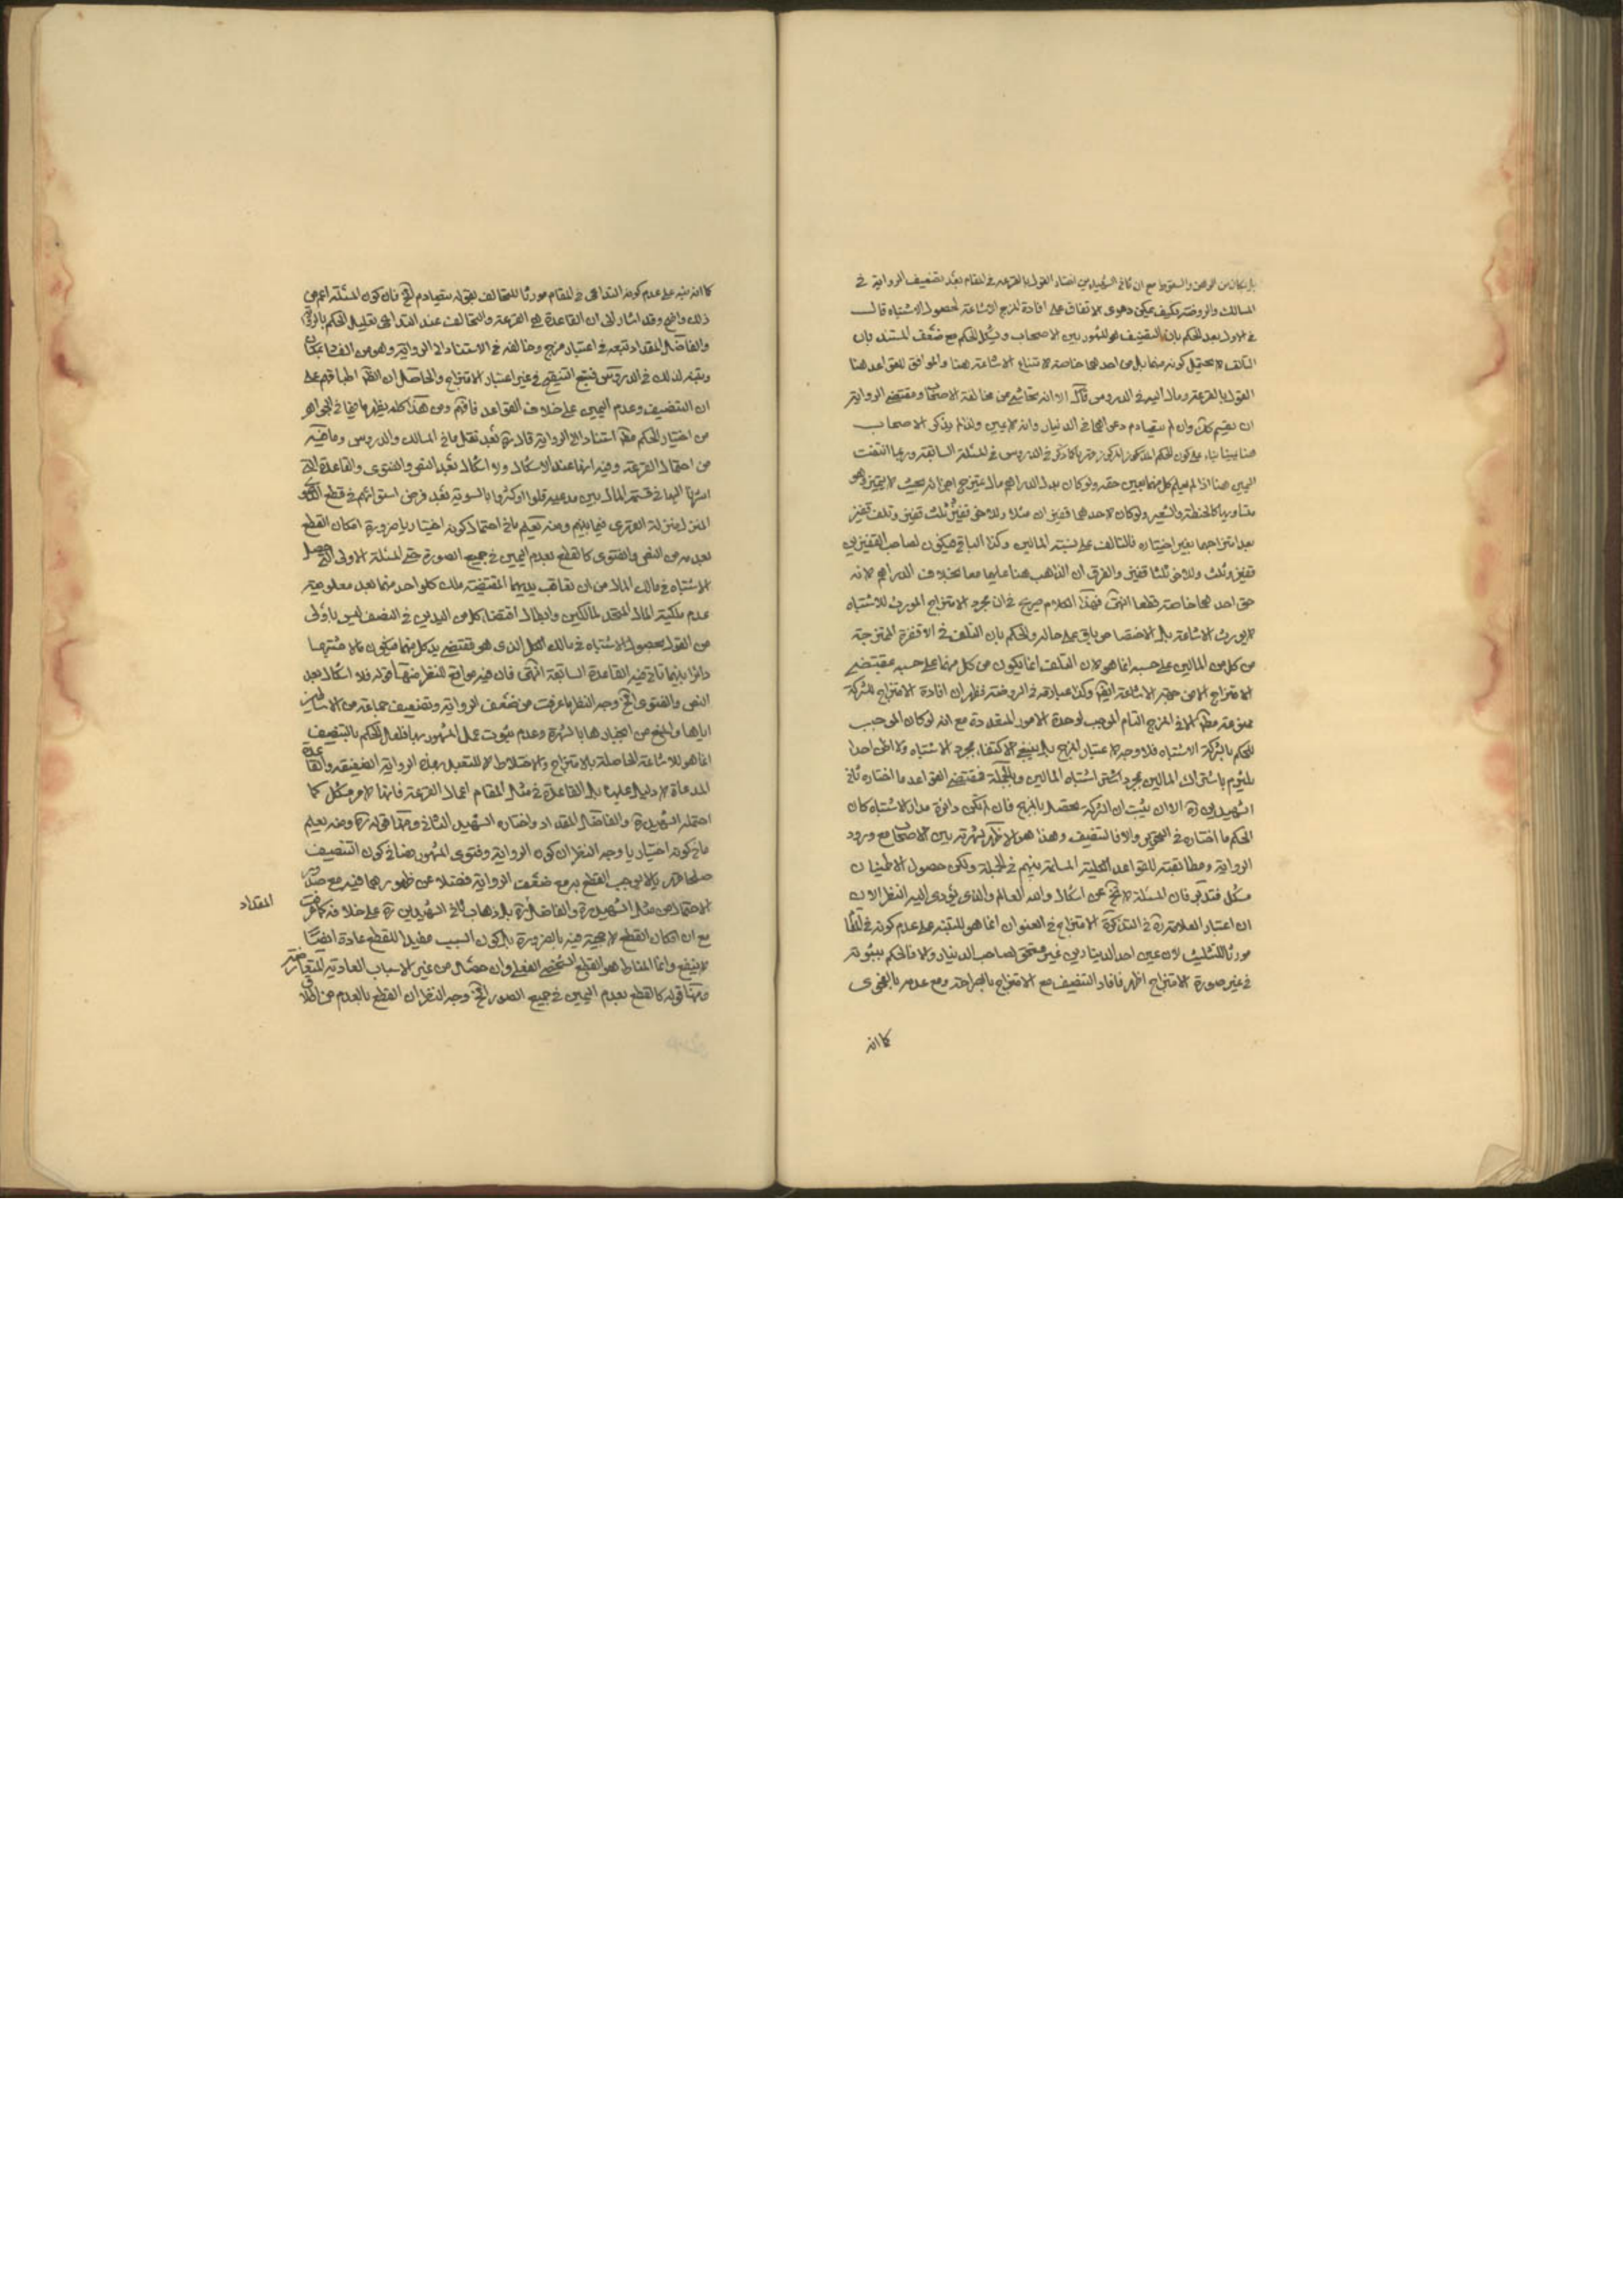 بل بمكان من الوهن والسقوط مع ان ثاني الشهيدين اختار القول بالقرعة في المقام بعد تضعيف الرواية في
المسالك والروضة فكيف يمكن دعوى الاتفاق على افادة المزج الاشاعة لحصول الاشتباه قال
في الاول بعد الحكم بان التنصيف هو المشهور بين الاصحاب ويشكل الحكم مع ضعف المستند بان
التالف لا يحتمل كونه منهما بل من احدهما خاصة لامتناع الاشاعة هنا والموافق للقواعد هنا
القول بالقرعة ومال اليه في الدروس قال الا انه تحاشى من مخالفة الاصحاب ومقتضى الرواية
ان يقسم كك وان لم يتصادم دعواهما في الدينار وانه لا يمين ولذا لم يذكر الاصحاب
هنا يمينا بناء على كون الحكم المذكور كما ذكر في الدروس في المسئلة السابقة وربما انتفت
اليمين هنا اذا لم يعلم كل منهما بعين حقه ولو كان بدل الدراهم مال يمتزج اجزائه بحيث لا يتميز وهو
متساويها كالحنطة والشعير ولو كان لاحدهما قفيزان مثلا وللاخر قفيز وتلف قفيز
بعد امتزاجهما بغير اختياره فالتالف على نسبة المالين وكذا الباقي فيكون لصاحب القفيزين
قفيز وثلث وللاخر ثلثا قفيز والفرق ان الذاهب هنا عليهما معا بخلاف الدراهم لانه
حق احدهما خاصة قطعا انتهى فهذا الكلام صريح في ان مجرد الامتزاج المورث للاشتباه
لا يورث الاشاعة بل الاختصاص باق على حاله والحكم بان التلف في الاقفزة الممتزجة
من كل من المالين على حسبه انما هو لان التلف انما يكون من كل منهما على حسبه بمقتضى
الامتزاج لا من جهة الاشاعة ايضا وكذا عبارته في الروضة فظهر ان افادة الامتزاج للشركة
ممنوعة مطلقا الا في المزج التام الموجب لوحدة الامور المتعددة مع انه لو كان الموجب
للحكم بالشركة الاشتباه فلا وجه لاعتبار المزج بل ينبغي الاكتفاء بمجرد الاشتباه ولا ارى احدا
يلتزم باشتراك المالين بمجرد اشتباه المالين وبالجملة فمقتضى القواعد ما اختاره ثاني
الشهيدين ره الا ان يثبت ان الشركة تحصل بالمزج فان لم تكن دائرة مدار الاشتباه كان
الحكم ما اختاره في التحرير والا فالتنصيف وهذا هو الاظهر لشهرته بين الاصحاب مع ورود
الرواية ومطابقته للقواعد الكلية المسلمة بينهم في الجملة ولكن حصول الاطمينان
مشكل فتدبر فان المسئلة لا تخ عن اشكال والله العالم والذي يؤدي اليه النظر الان
ان اعتبار العلامة ره في التذكرة الامتزاج في العنوان انما هو للتنبه على عدم كونه في المقام
مورثا للتثليث لان عين احد الدينارين غير مستحق لصاحب الدينار والا فالحكم بثبوته
في غير صورة الامتزاج اظهر فافاد التنصيف مع الامتزاج بالصراحة ومع عدمه بالفحوى
كما انه
كما انه نبه على عدم كونه التداعي في المقام مورثا للتحالف بقوله يتصادم الخ فان كون المسئلة اعم من
ذلك واضح وقد اشار الى ان القاعدة هي القرعة والتحالف عند التداعي تعليل الحكم بالرواية
والفاضل المقداد تبعه في اعتبار مزج وخالفه في الاستناد الى الرواية وهو من الفساد بمكان
وتنبه لذلك في الدروس فتبع التنقيح في غير اعتبار الامتزاج والحاصل ان الظ اطباقهم على
ان التنصيف وعدم اليمين على خلاف القواعد فافهم ومن هذا كله يظهر ما فيما في الجواهر
من اختيار الحكم مط استنادا الى الرواية قال ره بعد نقل ما في المسالك والدروس وما فيه
من احتمال القرعة وفيه انها عند الاشكال ولا اشكال بعد النص والفتوى والقاعدة التي
اشرنا اليها في قسمة المال بين مدعييه قلوا او كثروا بالسوية بعد فرض استوائهم في قطع الدعوى
المنزل منزلة العدم فيما بينهم ومنه يعلم ما في احتمال كونه اختياريا ضرورة امكان القطع
بعدمه من النص والفتوى كالقطع بعدم اليمين في جميع الصورة حتى المسئلة الاولى التي حصل
الاشتباه في مالك المال من ان تعاقب يديهما المقتضية ملك كل واحد منهما بعد معلومية
عدم ملكية المال المتحد لمالكين وابطال اقتضاء كل من اليدين في النصف ليس باولى
من القول بحصول الاشتباه في مالك الكل الذي هو مقتضى يد كل منهما فيكون كالاشتباه
دائرا بينهما تاتي فيه القاعدة السابقة انتهى فان فيه مواقع للنظر منها قوله فلا اشكال بعد
النص والفتوى الخ وجه النظر ما عرفت من ضعف الرواية وتضعيف جماعة من الاساطين
اياها والمنع من انجبارها بالشهرة وعدم ثبوت عمل المشهور بها فلعل الحكم بالتنصيف
انما هو للاشاعة الحاصلة بالامتزاج والاختلاط لا للتعبد بهذه الرواية الضعيفة والقاعدة
المدعاة لا دليل عليها بل القاعدة في مثل المقام اعمال القرعة فانها لامر مشكل كما
احتمله الشهيد ره والفاضل المقداد واختاره الشهيد الثاني ومنها قوله ره ومنه يعلم
ما في كونه اختياريا وجه النظر ان كون الرواية وفتوى المشهور نصا في كون التنصيف
صلحا قهريا لا يوجب القطع به مع ضعف الرواية فضلا عن ظهورهما فيه مع صدور
الاحتمال من مثل الشهيد ره والفاضل ره بل وذهاب ثاني الشهيدين ره على خلافه كما عرفت
المقداد
مع ان امكان القطع لا حجية فيه بالضرورة بل كون السبب مفيدا للقطع عادة ايضا
لا ينفع وانما المناط هو القطع الشخصي الفعلي وان حصل من غير الاسباب العادية المتعارفة
ومنها قوله كالقطع بعدم اليمين في جميع الصور الخ وجه النظر ان القطع بالعدم من اطلاق